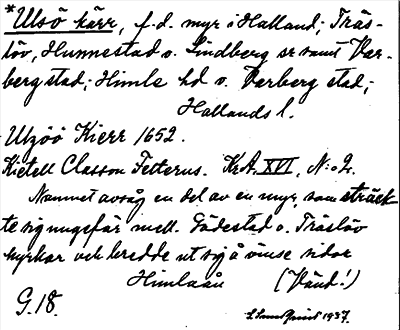 *Ulsö kärr, f.d. myr i Halland; Träs-
löv, Hunnestad o. Lindberg sr samt Var-
berg stad; Himle hd o. Varberg stad;
Hallands l.
Ulzöö Kierr 1652.
Kietell Classon Felterus. KrA, XVI, N:o 2.
Namnet avsåg en del av en myr, som sträck
te sig ungefär mell. Gödestad o. Träslöv
kyrkor och bredde ut sig å ömse sidor
Himleån (Vänd!)
G. 18.
1937.